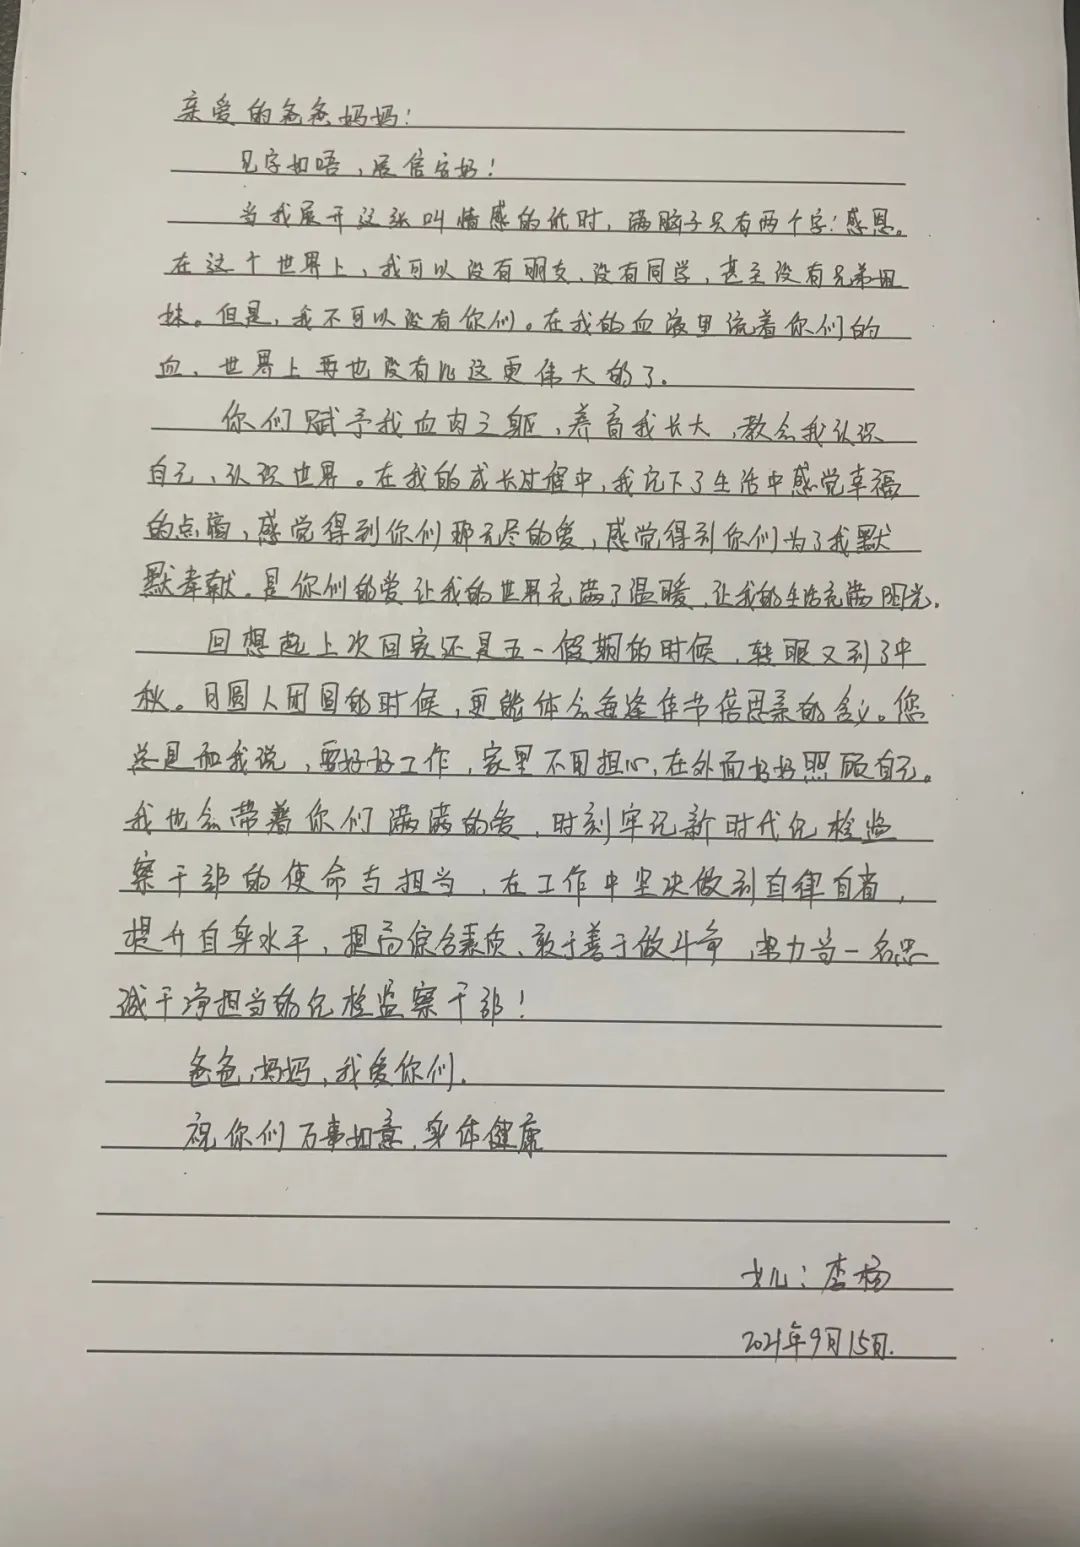 亲爱的爸爸妈妈：
见字如唔，展信安好！
当我展开这张叫情感的纸时，满脑子只有两个字：感恩。
在这个世界上，我可以没有朋友、没有同学，甚至没有兄弟姐
妹。但是，我不可以没有你们。在我的血液里流着你们的
血、世界上再也没有比这更伟大的了。
你们赋予我血肉之躯，养育我长大，教会我认识
自己、认识世界。在我的成长过程中，我记下了生活中感觉幸福
的点滴，感觉得到你们那无尽的爱，感觉得到你们为了我默
默奉献。是你们的爱让我的世界充满了温暖，让我的生活充满阳光。
回想起上次回家还是五一假期的时候，转眼又到了中
秋。月圆人团圆的时候，更能体会每逢佳节倍思亲的含义。您
总是和我说，要好好工作，家里不用担心，在外面好好照顾自己。
我也会带着你们满满的爱，时刻牢记新时代纪检监
察干部的使命与担当，在工作中坚决做到自律自省，
提升自身水平，提高综合素质、敢于善于做斗争，努力当一名忠
诚干净担当的纪检监察干部！
爸爸，妈妈，我爱你们。
祝你们万事如意，身体健康
女儿：李杨
2021年9月15日.